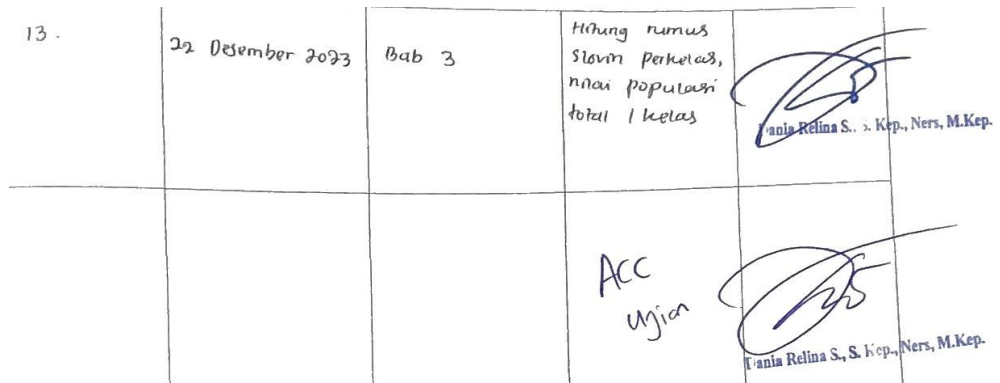 13.
22 Desember 2023
Bab 3
Hitung rumus
Slovin perkelas,
nilai populasi
total 1 kelas
Dania Relina S., S. Kep., Ners, M.Kep.
ACC
Ujian
Dania Relina S., S. Kep., Ners, M.Kep.